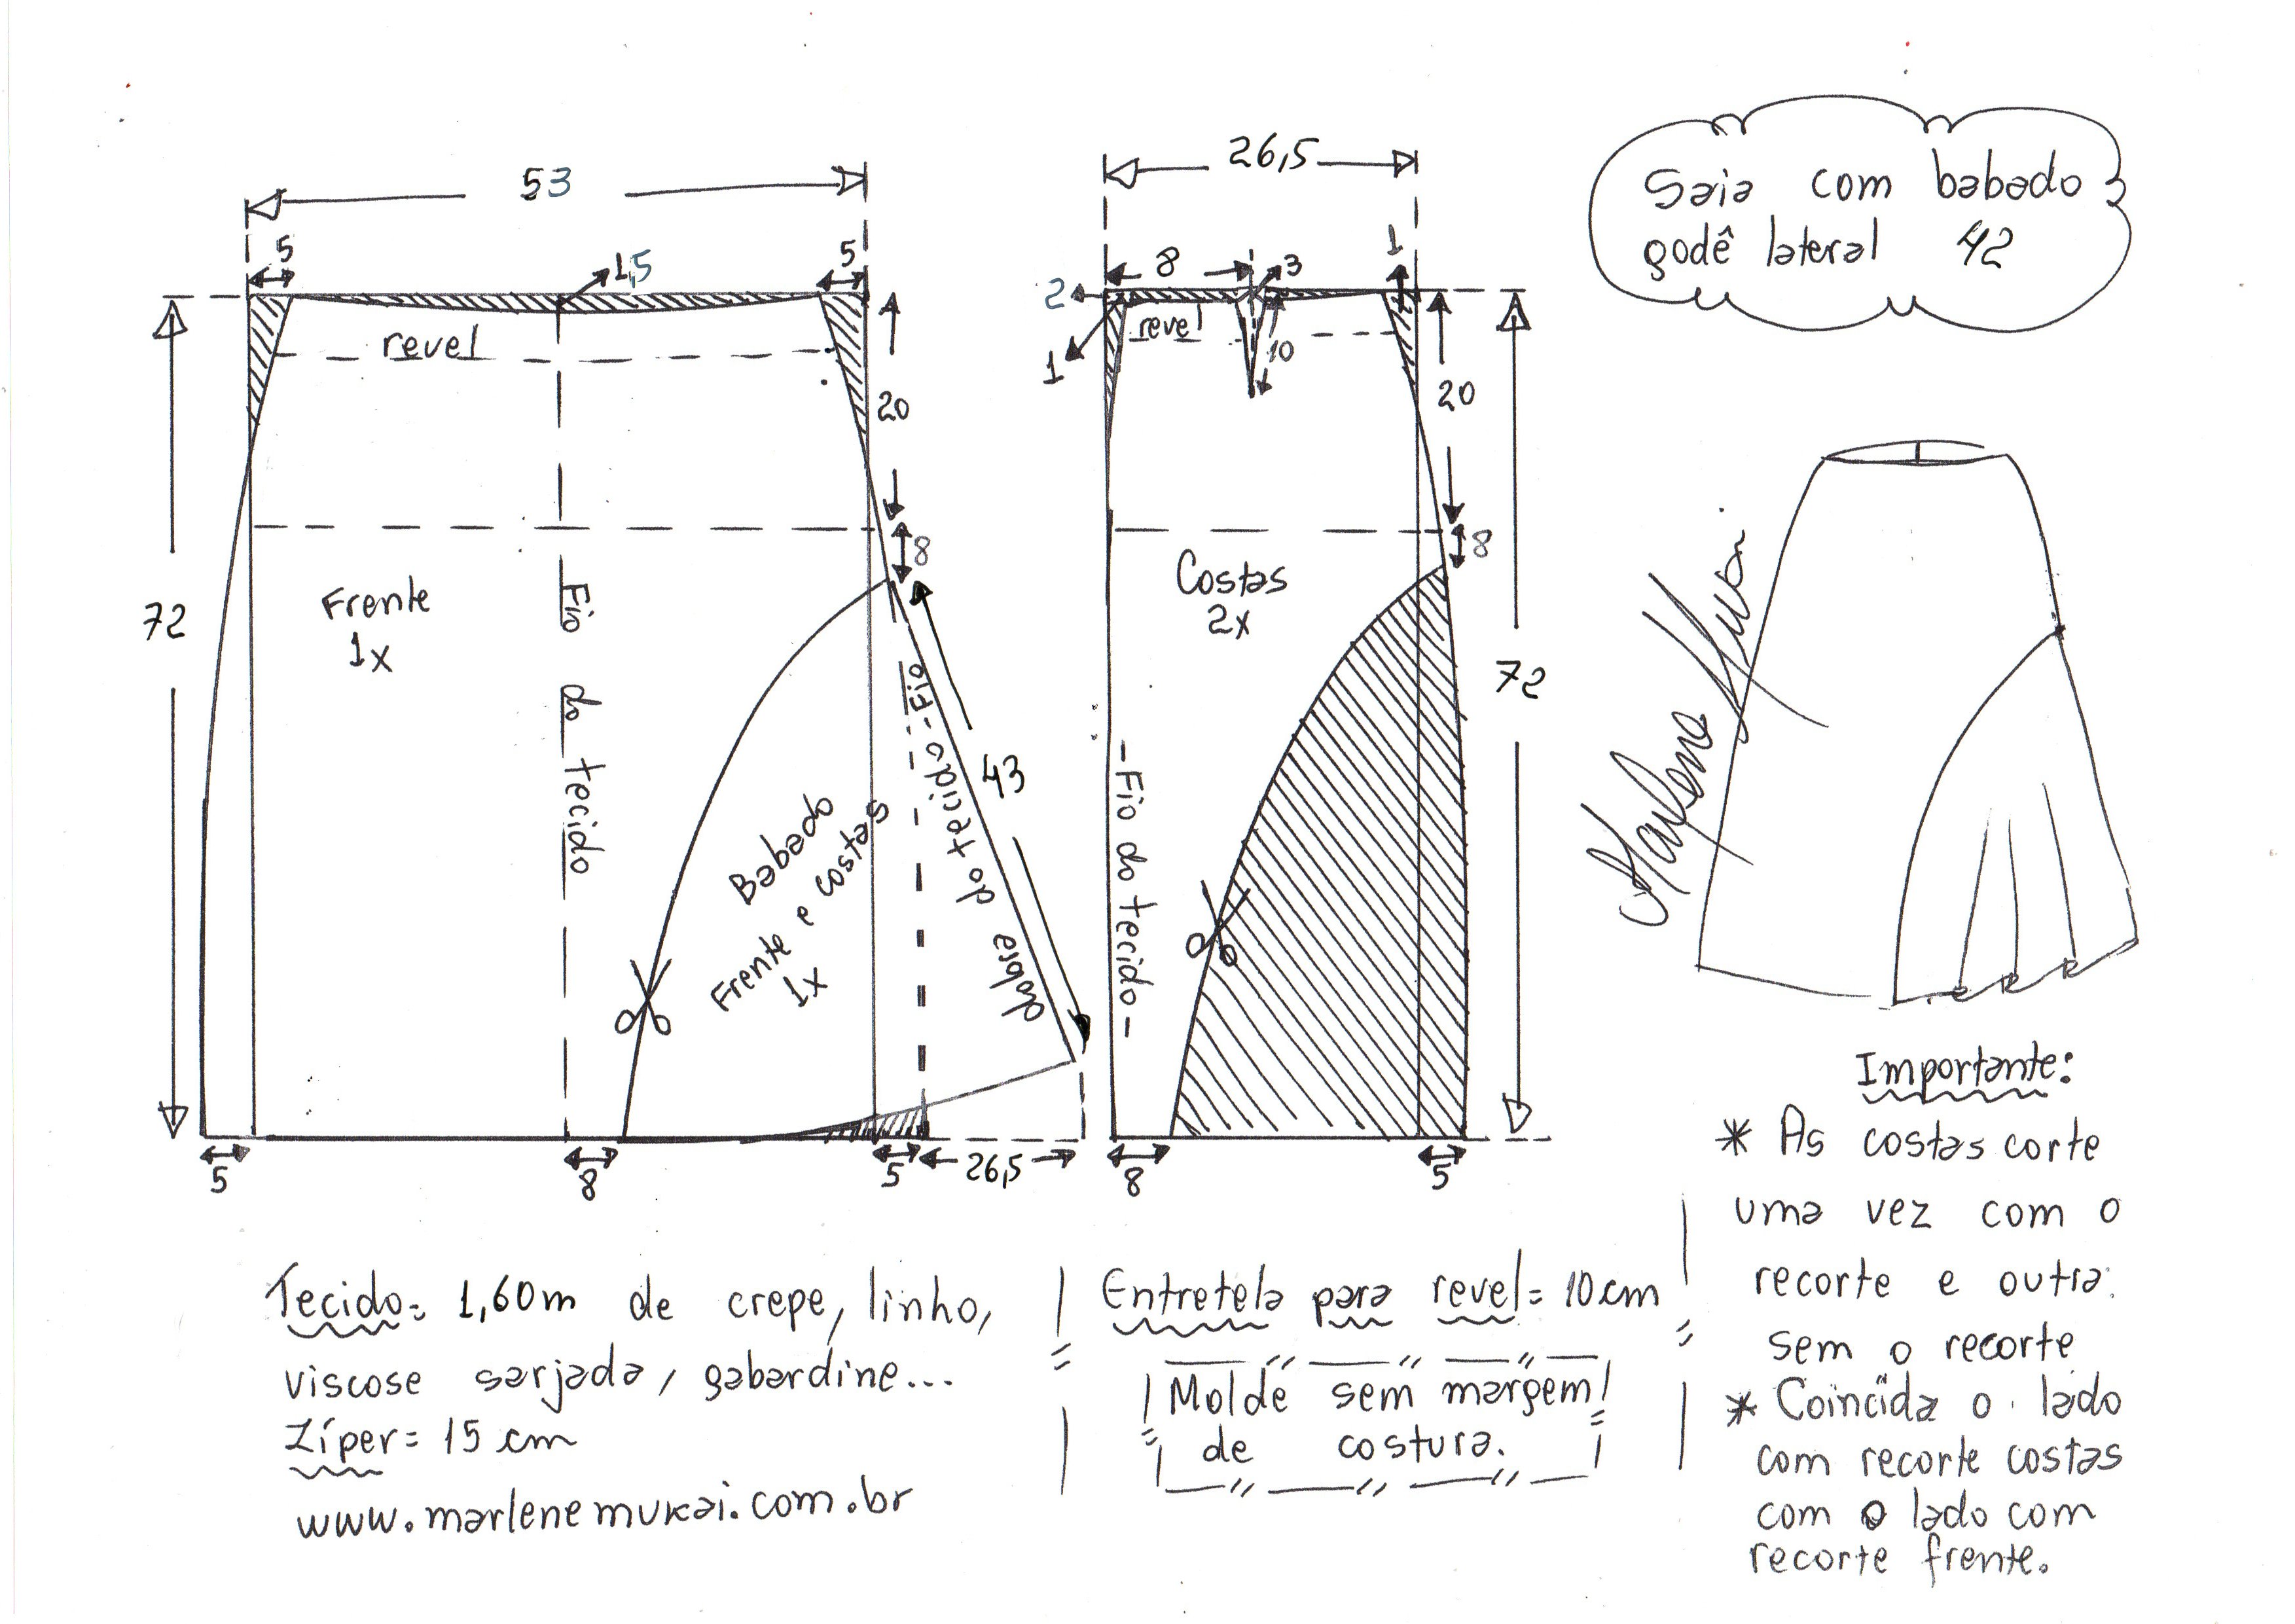 53
5
5
1,5
revel
20
8
72
Frente
1x
Fio do tecido
Fio do tecido
dobre
43
Babado
Frente e costas
1x
5
8
5
26,5
26,5
8
3
1
2
1
revel
10
20
8
Costas
2x
72
-Fio do tecido-
8
5
Saia com babado
godê lateral 42
Marlene Mukai
Importante:
* As costas corte
uma vez com o
recorte e outra
sem o recorte
* Coincida o lado
com recorte costas
com o lado com
recorte frente.
Tecido= 1,60m de crepe, linho,
viscose sarjada, gabardine...
Zíper= 15 cm
www.marlenemukai.com.br
Entretela para revel= 10cm
Molde sem margem
de costura.